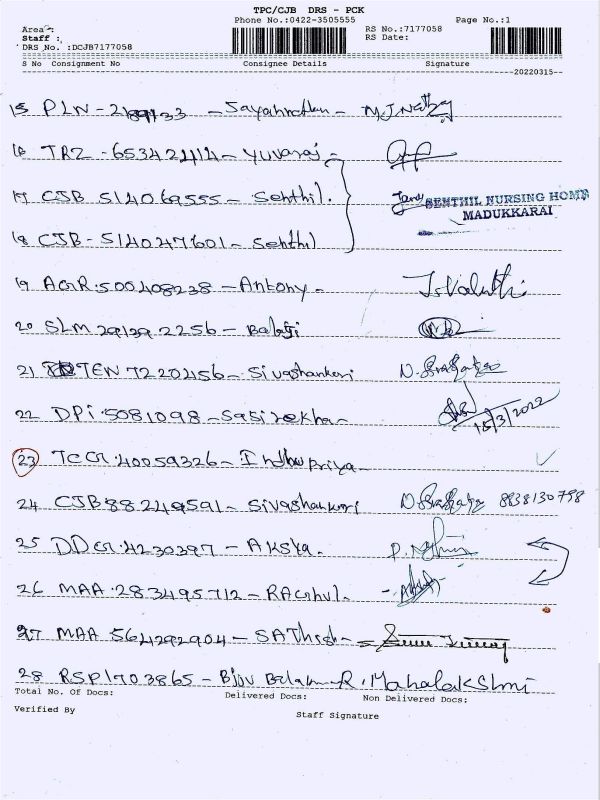 TPC/CJB DRS - PCK
Phone No.:0422-3505555 Page No.:1
Area :
Staff :
DRS No. :DCJB7177058
RS No.:7177058
RS Date:
S No Consignment No Consignee Details Signature
20220315
15 PLW - 133 - M.J.
16 TRZ - 653421414 - Yuvaraj -
17 CJB 514069555 - Senthil.
SENTHIL NURSING HOME
MADUKKARAI
18 CJB - 514047601 - Senthil
19 AGR 500408238 - Antony -
20 SLM 2256 - Balaji
21 TEN 7220456 - Sivashankari
22 DPI 5081098 - Sasirekha - 15/3/2022
23 TCG 40059326 - Indhu Priya
24 CJB 88249591 - Sivashankari 8838130798
25 DDG 4230397 - Aksya.
26 MAA 283495712 - RAGhul.
27 MAA 564292904 - SAThish -
28 RSP 1703865 - R. Mahalakshmi
Total No. Of Docs: Delivered Docs: Non Delivered Docs:
Verified By Staff Signature